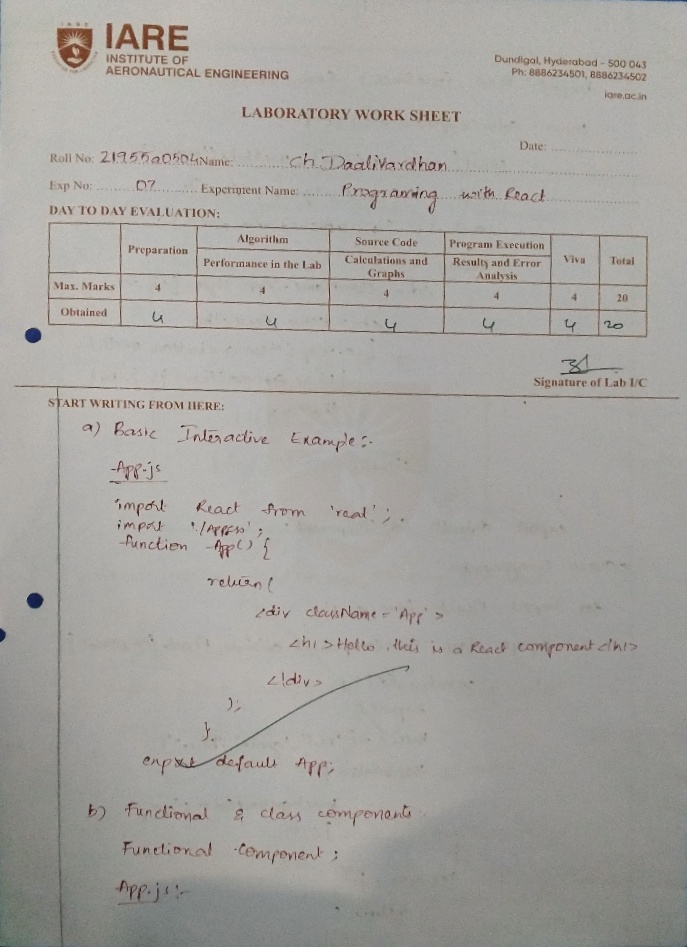 IARE
INSTITUTE OF
AERONAUTICAL ENGINEERING
Dundigal, Hyderabad - 500 043
Ph: 8886234501, 8886234502
iare.ac.in
LABORATORY WORK SHEET
Date:
Roll No: 21955a0504 Name: Ch. DaaliVardhan
Exp No: 07 Experiment Name: Programing with React
DAY TO DAY EVALUATION:
Preparation Algorithm Source Code Program Execution Viva Total
Performance in the Lab Calculations and Graphs Results and Error Analysis
Max. Marks 4 4 4 4 4 20
Obtained 4 4 4 4 4 20
Signature of Lab I/C
START WRITING FROM HERE:
a) Basic Interactive Example:-
App.js
import React from 'reat';
import './App.css';
function App() {
return (
<div className='App'>
<h1>Hello, this is a React component</h1>
</div>
);
}
export default App;
b) Functional & class components
Functional component;
App.js:-